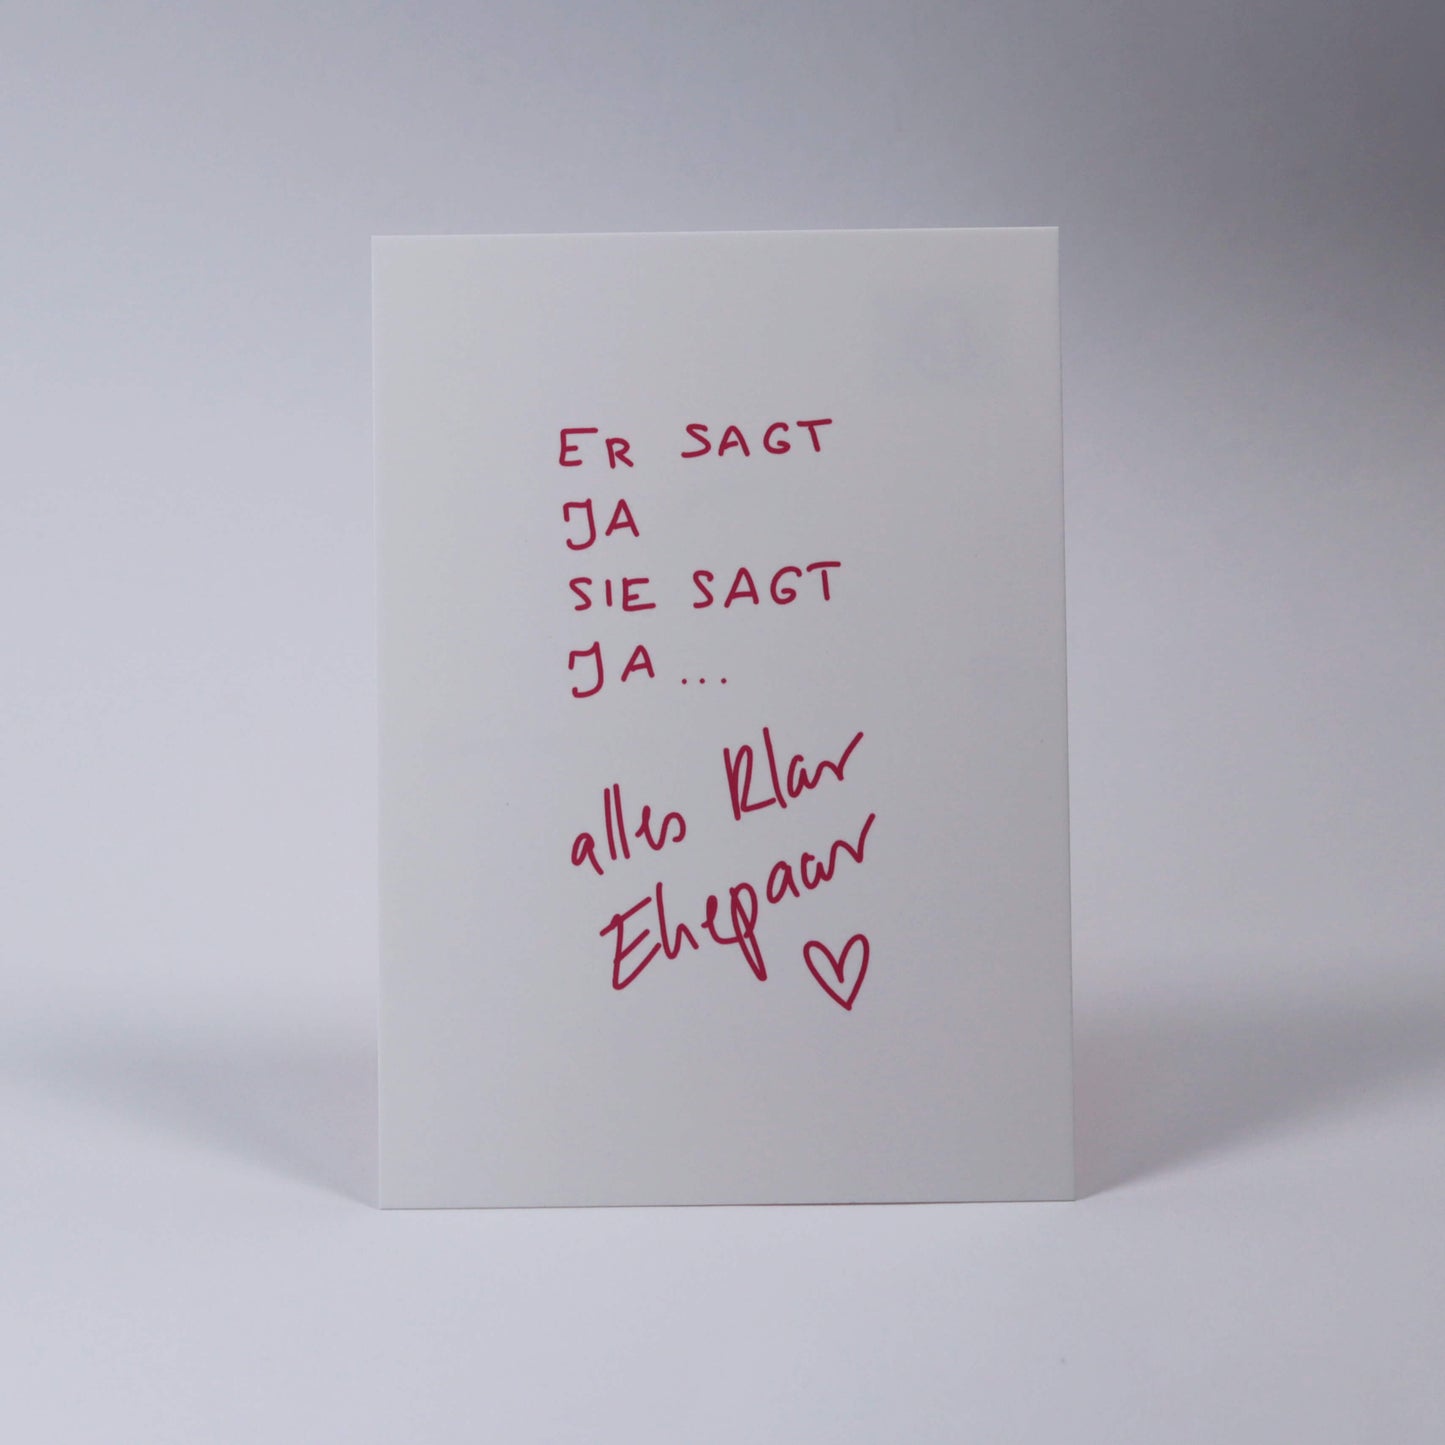 ER SAGT
JA
SIE SAGT
JA...
alles klar
Ehepaar